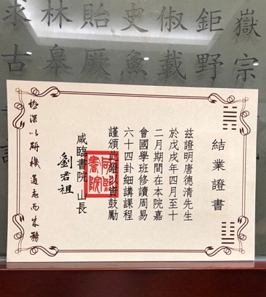 嶽宗
鉅野
俶載
史魚
貽厥
林皋
求古
結業證書
茲證明唐德清先生
於戊戌年四月至十
二月期間在本院嘉
會國學班修讀周易
六十四卦細講課程
謹頒此證以資鼓勵
咸臨書院 山長
劉君祖
極深以研機通志而成務